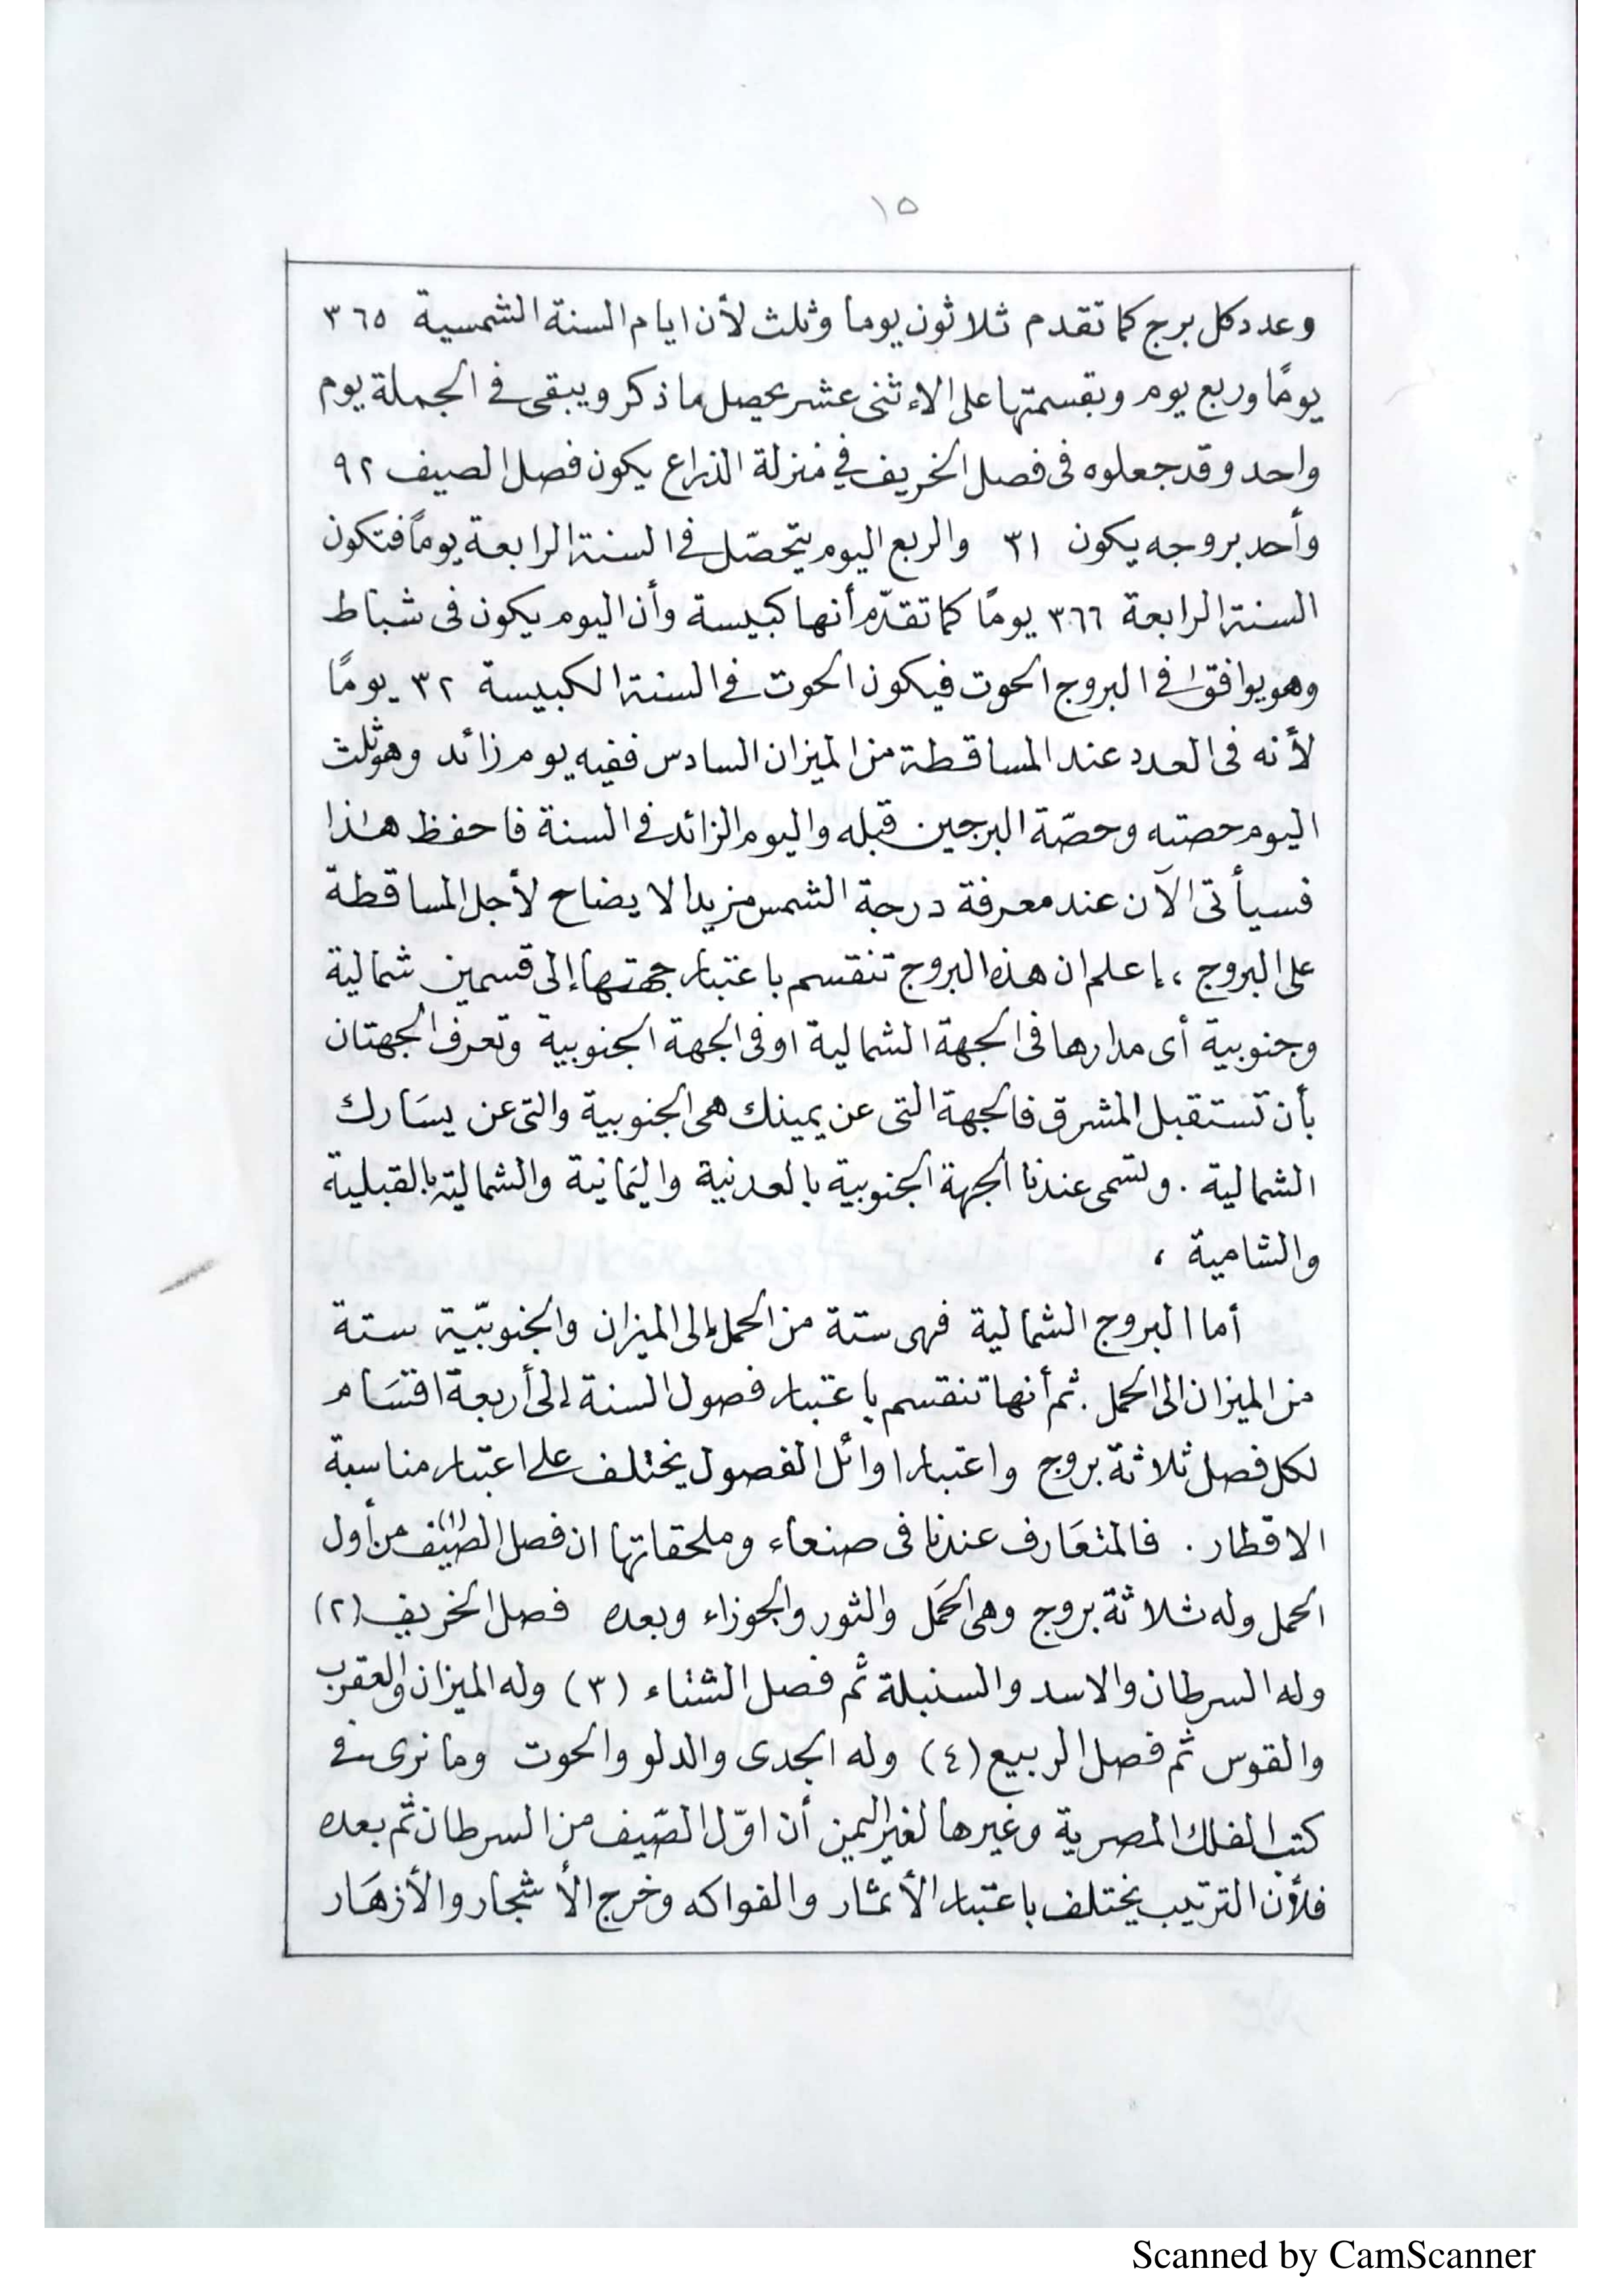 ١٥
وعدد كل برج كما تقدم ثلاثون يوما وثلث لأن ايام السنة الشمسية ٣٦٥
يومًا وربع يوم وبقسمتها على الاثنى عشر يحصل ما ذكر ويبقى في الجملة يوم
واحد وقد جعلوه فى فصل الخريف في منزلة الذراع يكون فصل الصيف ٩٢
وأحد بروجه يكون ٣١ والربع اليوم يتحصّل في السنة الرابعة يومًا فتكون
السنة الرابعة ٣٦٦ يومًا كما تقدّم أنها كبيسة وأن اليوم يكون فى شباط
وهو يوافق في البروج الحوت فيكون الحوت في السنة الكبيسة ٣٢ يومًا
لأنه فى العدد عند المساقطة من الميزان السادس ففيه يوم زائد وهو ثلث
اليوم حصته وحصّة البرجين قبله واليوم الزائد في السنة فاحفظ هذا
فسيأتى الآن عند معرفة درجة الشمس مزيد الايضاح لأجل المساقطة
على البروج ، إعلم ان هذه البروج تنقسم باعتبار جهتها إلى قسمين شمالية
وجنوبية أى مدارها فى الجهة الشمالية او فى الجهة الجنوبية وتعرف الجهتان
بأن تستقبل المشرق فالجهة التى عن يمينك هى الجنوبية والتى عن يسَارك
الشمالية . وتسمى عندنا الجهة الجنوبية بالعدنية واليَمانية والشمالية بالقبلية
والشامية ،
أما البروج الشمالية فهى ستة من الحمل إلى الميزان والجنوبيّة ستة
من الميزان الى الحمل . ثم أنها تنقسم باعتبار فصول السنة إلى أربعة اقسَام
لكل فصل ثلاثة بروج واعتبار اوائل الفصول يختلف على اعتبار مناسبة
الاقطار . فالمتعَارف عندنا فى صنعاء وملحقاتها ان فصل الصيف (١) من أول
الحمل وله ثلاثة بروج وهى الحَمل والثور والجوزاء وبعده فصل الخريف (٢)
وله السرطان والاسد والسنبلة ثم فصل الشتاء (٣) وله الميزان والعقرب
والقوس ثم فصل الربيع (٤) وله الجدى والدلو والحوت وما نرى في
كتب الفلك المصرية وغيرها لغير اليمن أن اوّل الصّيف من السرطان ثم بعده
فلأن الترتيب يختلف باعتبار الأثمار والفواكه وخرج الأشجار والأزهَار
Scanned by CamScanner